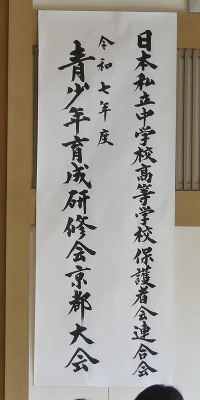 日本私立中学校高等学校保護者会連合会
令和七年度
青少年育成研修会京都大会